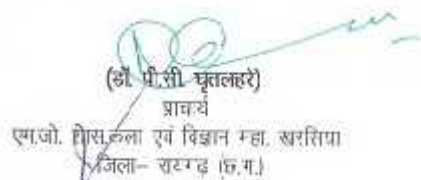 (डॉ. पी.सी. घृतलहरे)
प्राचार्य
एम.जी. कला एवं विज्ञान महा. खरसिया
जिला– रायगढ़ (छ.ग.)